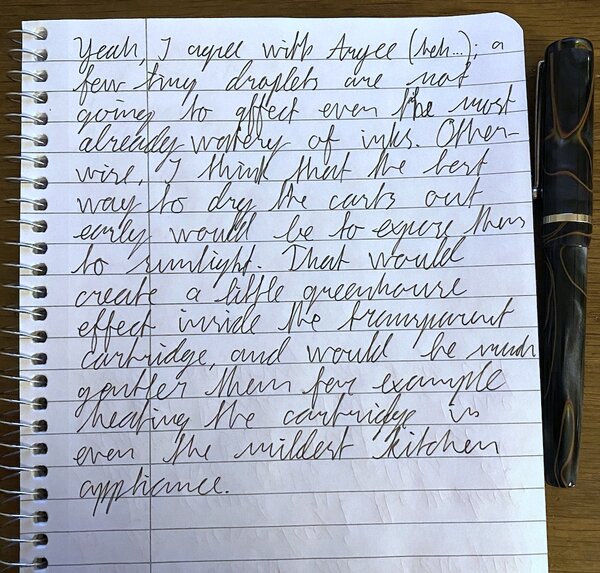 Yeah, I agree with Angee (heh...); a
few tiny droplets are not
going to affect even the most
already watery of inks. Other-
wise, I think that the best
way to dry the carts out
early would be to expose them
to sunlight. That would
create a little greenhouse
effect inside the transparent
cartridge, and would be much
gentler than for example
heating the cartridge in
even the mildest kitchen
appliance.